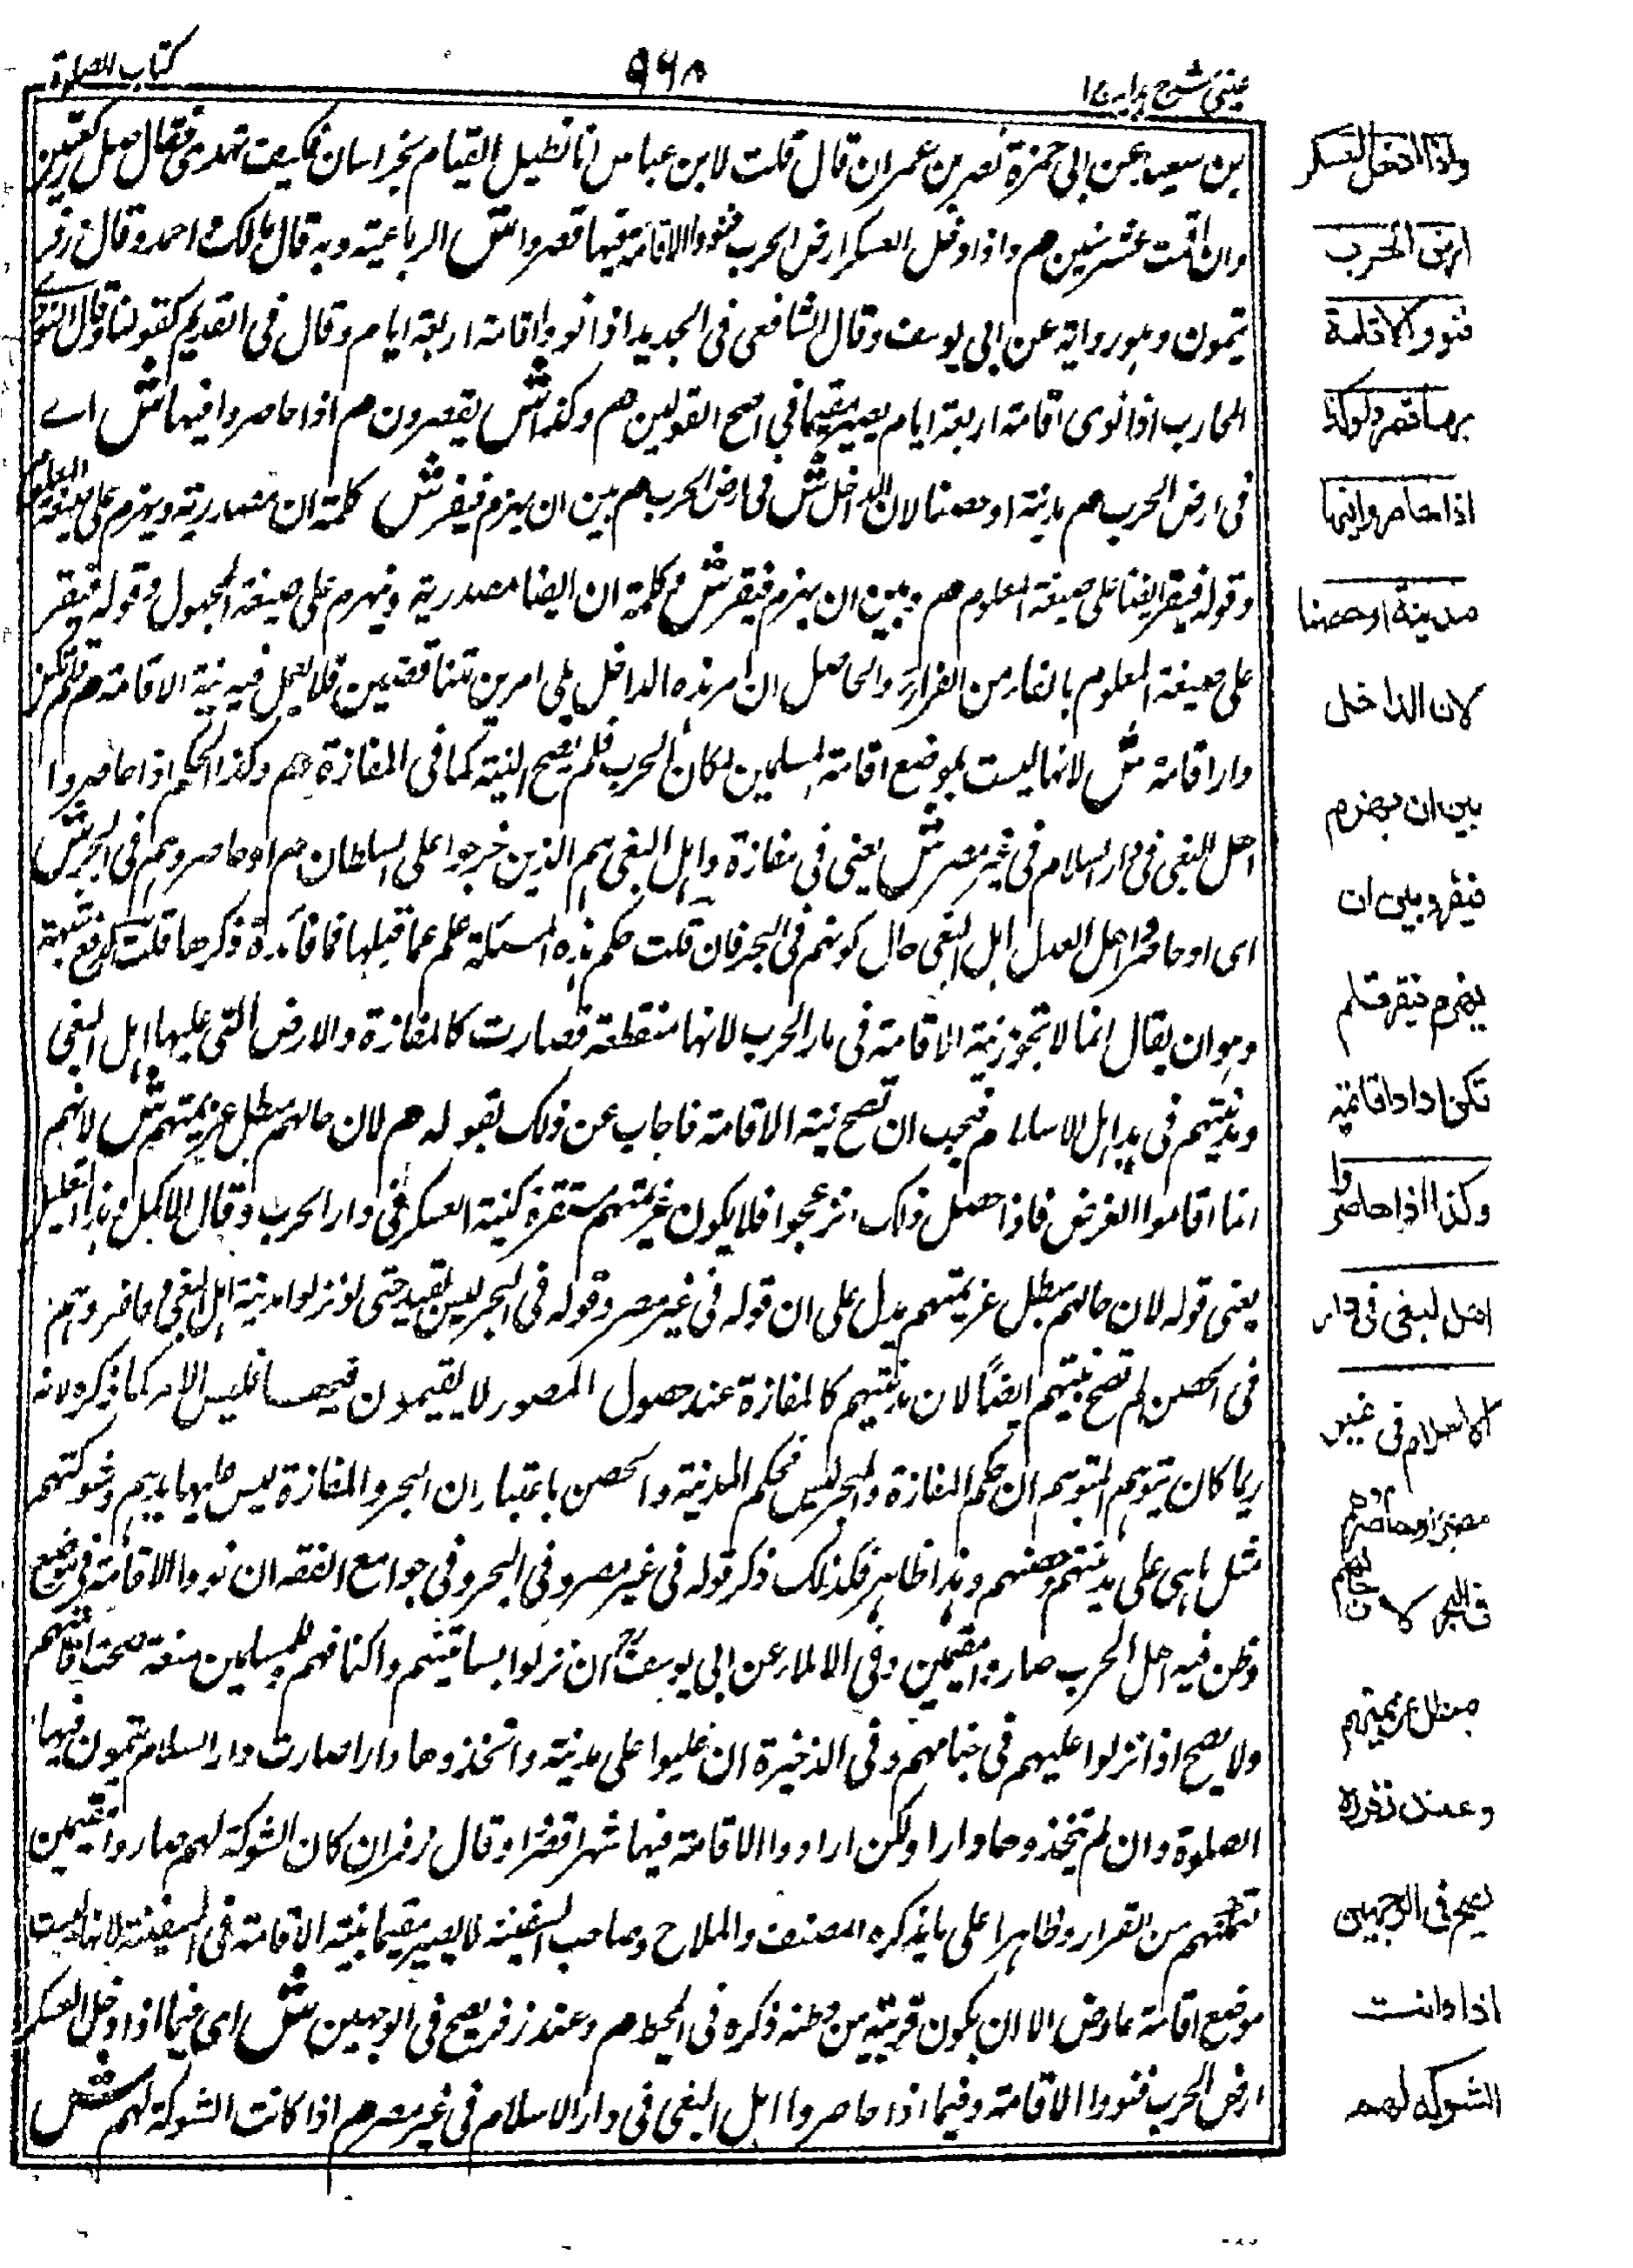 عینی شرح ہدایہ ج ۱
۹۶۸
کتاب الصلوة
بن سعید عن ابی حمزة نصر بن عمران قال قلت لابن عباس انا نطیل القیام بخراسان فکیف تری فقال صل رکعتین
وان اقمت عشر سنین هم واذا دخل العسکر ارض الحرب فنووا الاقامة فیها قصروا ش الرباعیة وبه قال مالک واحمد وقال زفر
یتمون وهو روایة عن ابی یوسف وقال الشافعی فی الجدید اذا نووا اقامة اربعة ایام وقال فی القدیم کقولنا وقال النووی
المحارب اذا نوی اقامة اربعة ایام یصیر مقیما فی اصح القولین هم وکذا ش یقصرون هم اذا حاصروا فیها ش اے
فی ارض الحرب هم مدینة او حصنا لان الداخل ش فی ارض الحرب هم بین ان یهزم فیفر ش کلمة ان مصدریة ویهزم علی صیغة المعلوم
وقوله فیقر ایضا علی صیغة المعلوم هم وبین ان یهزم فیقر ش وکلمة ان ایضا مصدریة ویهزم علی صیغة المجهول وقوله فیفر
علی صیغة المعلوم بالفاء من الفرار والحاصل ان امر هذه الداخل یلی امرین متناقضین فلا یعمل فیه نیة الاقامة هم فلم تکن
دار اقامة ش لانها لیست بموضع اقامة المسلمین لمکان الحرب فلم تصح النیة کما فی المفازة هم وکذا الحکم اذا حاصروا
اهل البغی فی دار السلام فی غیر مصر ش یعنی فی مفازة واهل البغی هم الذین خرجوا علی السلطان هم او حاصروهم فی البحر ش
ای او حاصر اهل العدل اهل البغی حال کونهم فی البحر فان قلت حکم هذه المسئلة علم عما قبلها فما فائدة ذکرها قلت لدفع شبهة
وهو ان یقال انما لا تجوز نیة الاقامة فی دار الحرب لانها منقطعة فصارت کالمفازة والارض التی علیها اهل البغی
ومدینتهم فی ید اهل الاسلام فیجب ان تصح نیة الاقامة فاجاب عن ذلک بقوله هم لان حالهم مبطل عزیمتهم ش لانهم
انما اقاموا لغرض فاذا حصل ذلک انزعجوا فلا یکون عزیمتهم مستقرة کنیة العسکر فی دار الحرب وقال الاکمل وهذا التعلیل
یعنی قوله لان حالهم مبطل عزیمتهم یدل علی ان قوله فی غیر مصر وقوله فی البحر لیس بقید حتی لو نزلوا مدینة اهل البغی وحاصروهم
فی الحصن لم تصح نیتهم ایضاً لان مدینتهم کالمفازة عند حصول المقصود لا یقیمون فیها فلیس الامر کما ذکره لانه
ربما کان یتوهم المتوهم ان حکم المفازة والبحر لیس کحکم المدینة والحصن باعتبار ان البحر والمفازة لیس علیهما یدهم وشوکتهم
مثل ما هی علی مدینتهم وحصنهم وهذا ظاهر فکذلک ذکر قوله فی غیر مصر وفی البحر وفی جوامع الفقه ان نووا الاقامة فی موضع
وطن فیه اهل الحرب صاروا مقیمین وفی الاملاء عن ابی یوسف ان نزلوا بساتینهم واکنافهم وللمسلمین منعة صحت اقامتهم
ولا یصح اذا نزلوا علیهم فی خیامهم وفی الذخیرة ان غلبوا علی مدینة واتخذوها دارا صارت دار السلام یتمون فیها
الصلوة وان لم یتخذوها دارا ولکن ارادوا الاقامة فیها شهرا قصروا وقال زفر ان کان الشوکة لهم صاروا مقیمین
لتمکنهم من القرار وظاهرا علی ما یذکره المصنف والملاح وصاحب السفینة لا یصیر مقیما بنیة الاقامة فی السفینة لانها لیست
موضع اقامة الا ان یکون قریبة من وطنه ذکره فی المحیط هم وعند زفر یصح فی الوجهین ش ای فیما اذا دخل العسکر
ارض الحرب فنووا الاقامة وفیما اذا حاصروا اهل البغی فی دار الاسلام فی غیر مصر هم اذا کانت الشوکة لهم ش
واذا دخل العسکر
ارض الحرب
فنووا الاقامة
بها قصروا وکذا
اذا حاصروا فیها
مدینة او حصنا
لان الداخل
بین ان یهزم
فیفر وبین ان
یهزم فیقر فلم
تکن دار اقامة
وکذا اذا حاصروا
اهل البغی فی دار
الاسلام فی غیر
مصر او حاصروهم
فی البحر لان حالهم
مبطل عزیمتهم
وعند زفر
یصح فی الوجهین
اذا کانت
الشوکة لهم